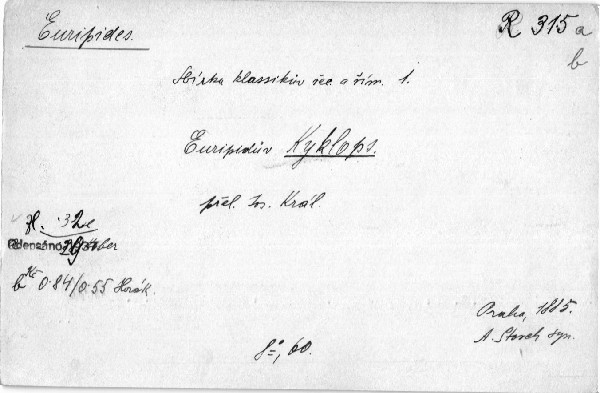 Euripides.
R 315 a
b
Sbírka klassikův řec. a řím. 1.
Euripidův Kyklops.
přel. Jos. Král.
32
b Kč 0.84/0.55 Horák.
Praha, 1885.
A. Storch syn.
8°, 60.